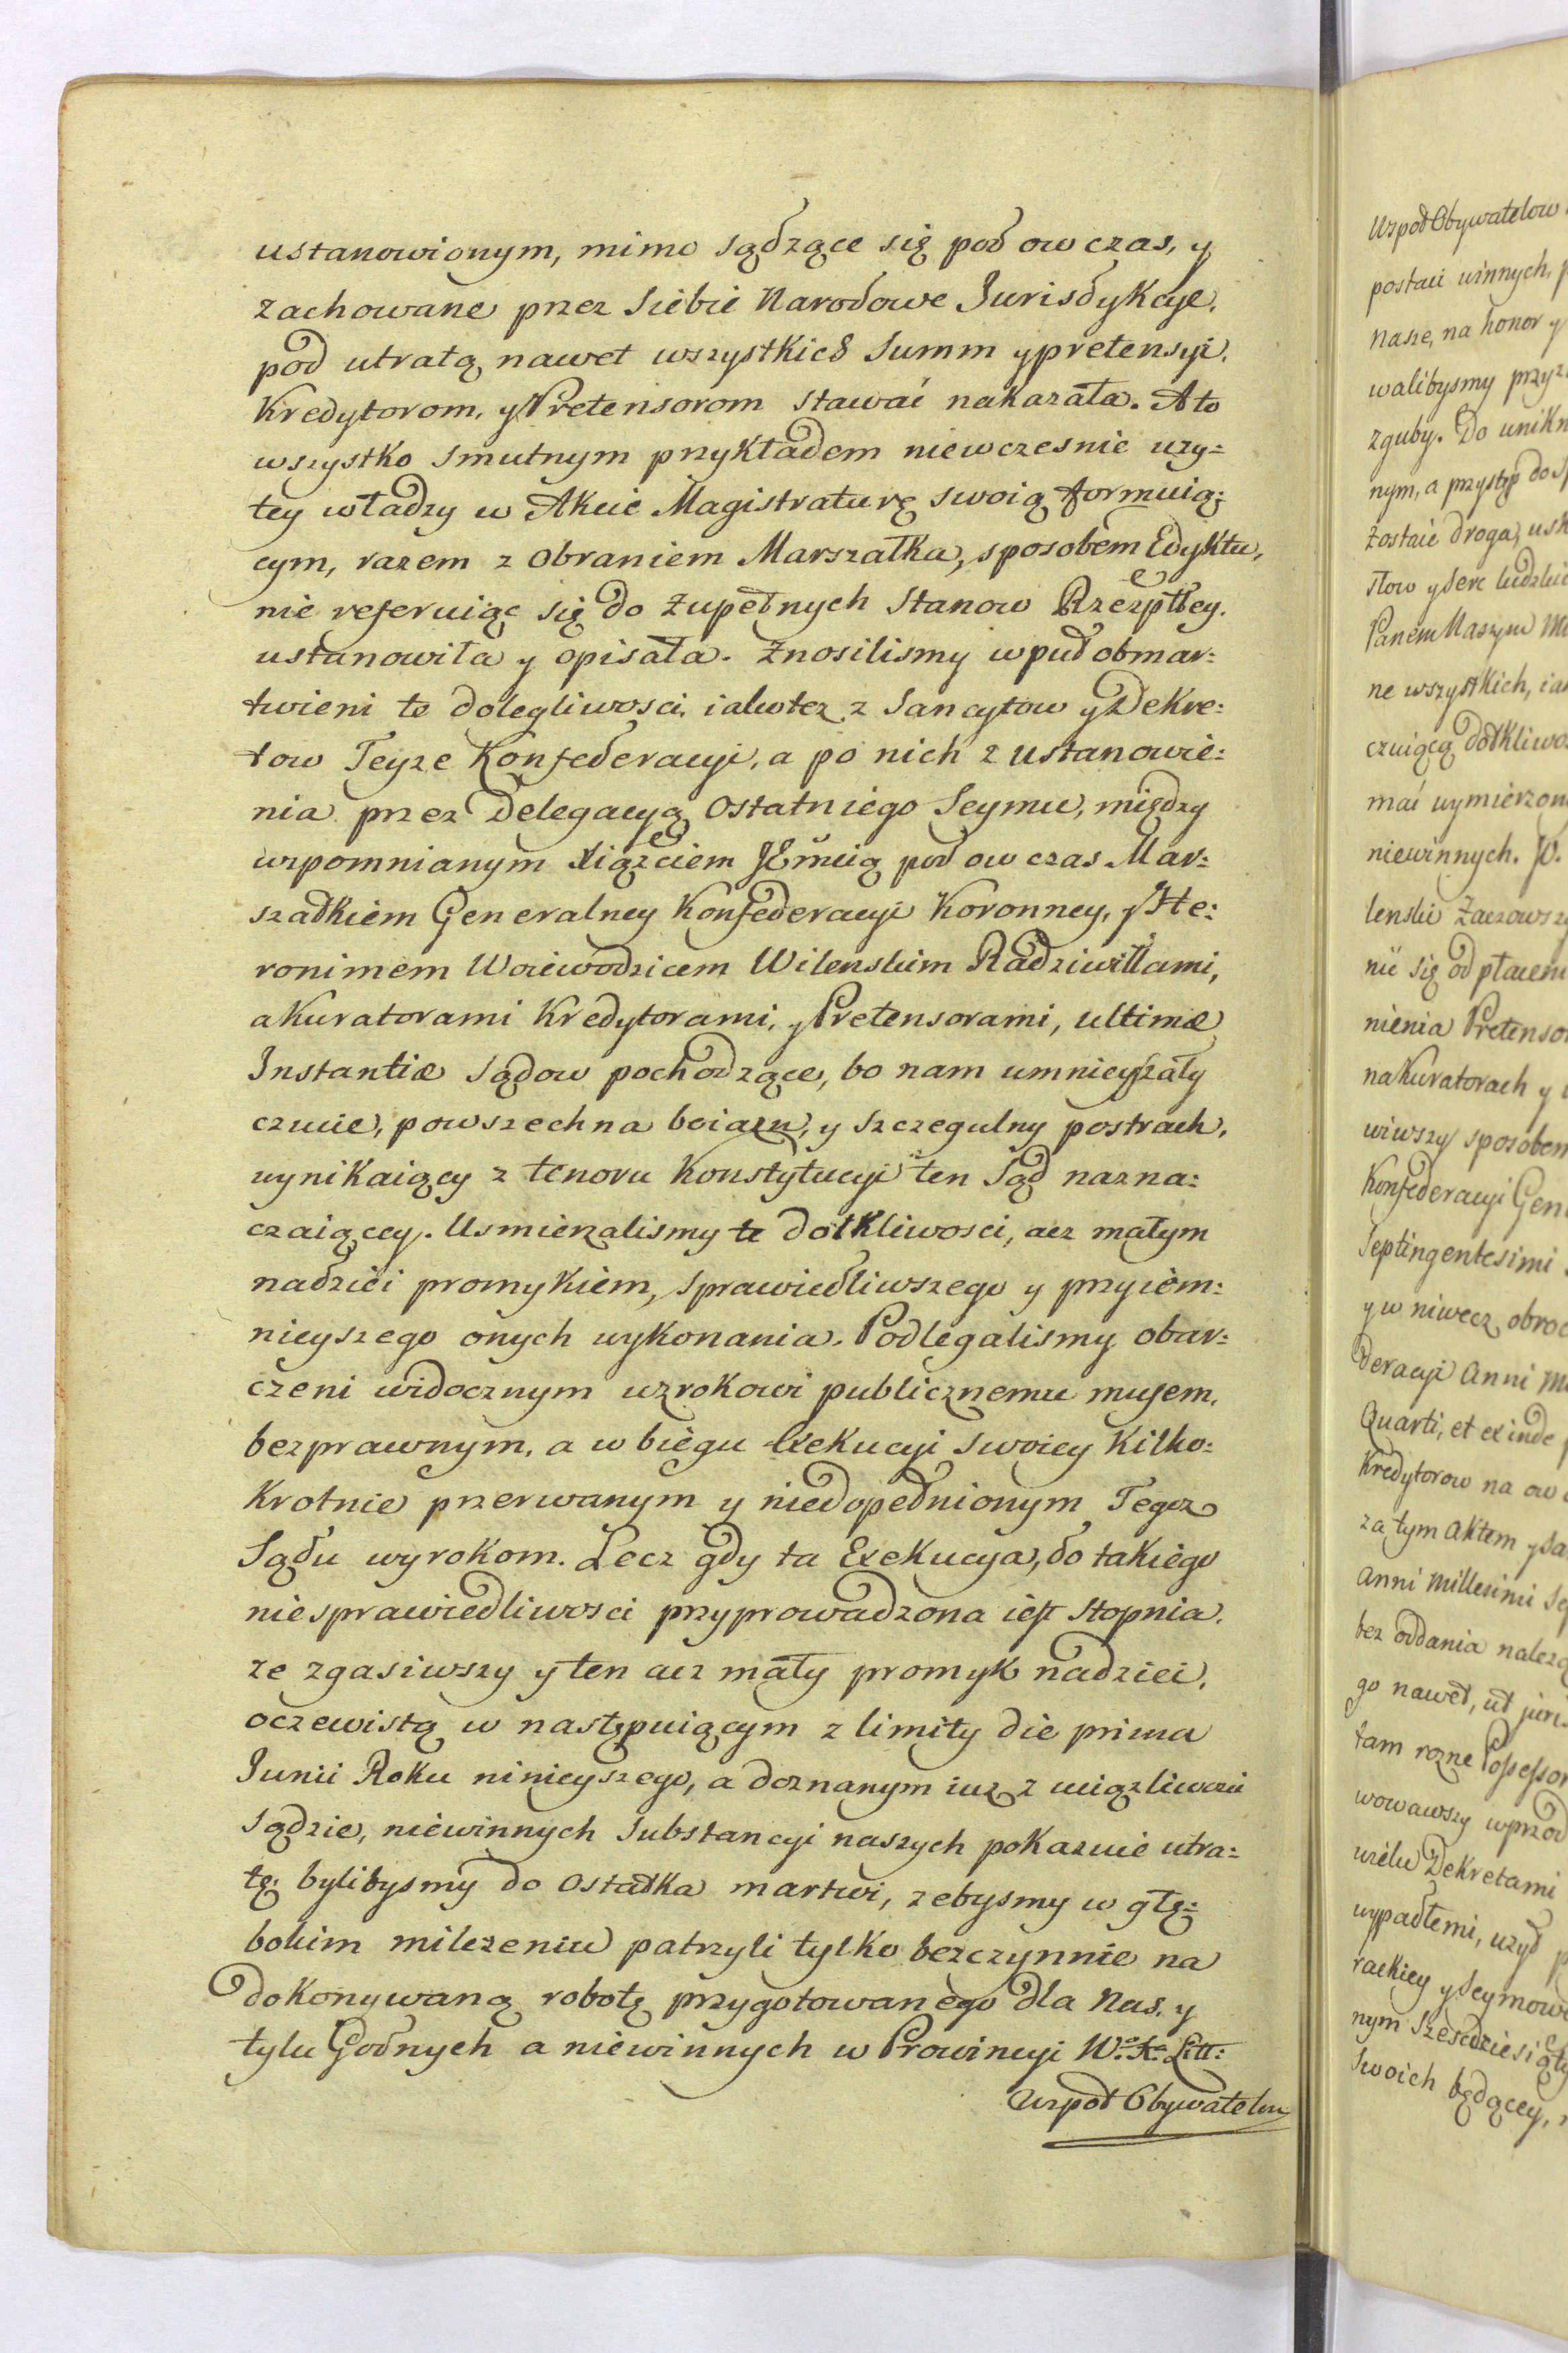 ustanowionym, mimo sądzące się pod ow czas, y
zachowane przez siebie Narodowe Jurisdykcye,
pod utratą nawet wszystkich Summ y pretensyi,
Kredytorom, y Pretensorom stawać nakazała. A to
wszystko smutnym przykładem niewczesnie uzy=
tey władzy w Akcie Magistraturę swoią formuią=
cym, razem z obraniem Marszałka, sposobem Edyktu,
nie referuiąc się do zupełnych Stanow Rzezptłey.
ustanowiła y opisała. Znosilismy wpuł obmar=
twieni te dolegliwosci, iakotez z Sancytow y Dekre=
tow Teyze Konfederacyi, a po nich z ustanowie=
nia przez Delegacyą Ostatniego Seymu, między
wzpomnianym Xiązciem JEmcią pod ow czas Mar=
szałkiem Generalney Konfederacyi Koronney, y He=
ronimem Woiewodzicem Wilenskim Radziwiłłami,
a Kuratorami Kredytorami, y Pretensorami, ultimæ
Instantiæ Sądow pochodzące, bo nam umnieyszały
czucie, powszechna boiazn, y szczegulny postrach,
wynikaiący z tenoru Konstytucyi ten Sąd nazna=
czaiącey. Usmierzalismy te dotkliwosci, acz małym
nadziei promykiem, sprawiedliwszego y przyiem=
nieyszego onych wykonania. Podlegalismy obar=
czeni widocznym wzrokowi publicznemu musem,
bezprawnym, a w biegu Exekucyi swoiey Kilko=
krotnie przerwanym y niedopełnionym Tegoz
Sądu wyrokom. Lecz gdy ta Exekucya, do takiego
niesprawiedliwosci przyprowadzona iest stopnia,
ze zgasiwszy y ten acz mały promyk nadziei,
oczewistą w następuiącym z limity die prima
Junii Roku ninieyszego, a doznanym iuz z uciązliwosci
Sądzie, niewinnych Substancyi naszych pokazuie utra=
tę. bylibysmy do ostatka martwi, zebysmy w głę=
bokim milczeniu patrzyli tylko bezczynnie na
dokonywaną robotę przygotowanego dla Nas, y
tylu Godnych a niewinnych w Prowincyi W.º X.ª Litt:
Wzpoł Obywatelow
Wzpoł Obywatelow
postaci winnych,
nasze, na honor y
walibysmy
zguby. Do unikn
nym, a przystęp do
zostaie droga,
słow y serc
Panem Naszym
ne wszystkich,
czuiącą
wymierzon
niewinnych. JO.
lenski
nić się od płacen
nienia
na Kuratorach y
wiwszy sposobem
Konfederacyi Gen
Septingentesimi
y w niwecz obroc
deracyi Anni
Quarti, et exinde
Kredytorow na ow
za tym aktem y
Anni Millesimi
bez oddania
go nawet, ut
tam rozne Possessor
wowawszy wprzod
wielu Dekretami
wypadłemi, uzył
rackiey y Seymow
nym
Swoich będącey,